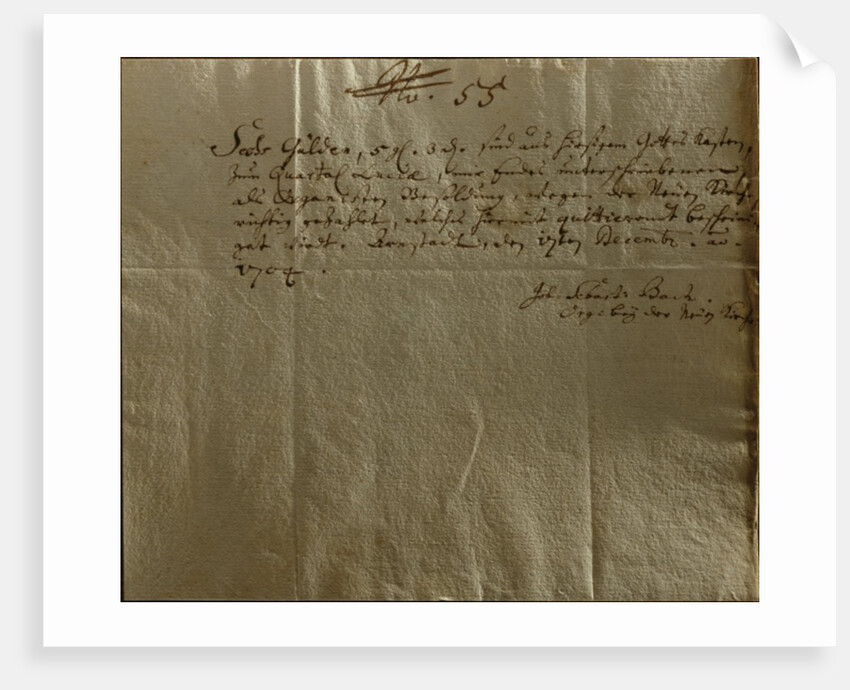 No. 55
Sechs Gülden, 5 gl. 3 d. sind aus hiesigem Gottes Kasten,
zum Quartal Luciæ, mir Endes unterschriebenen,
als Organisten Besoldung, wegen der Neuen Kirche,
richtig gezahlet, welches hiermit quittierendt bescheini-
get wirdt. Arnstadt, den 17ten Decembr. ao.
1704.
Joh. Sebast. Bach.
Org. bey der Neuen Kirche